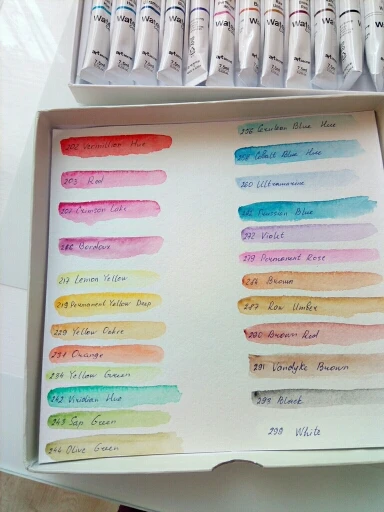 Wate
Wate
Wate
Wate
Wate
202 Vermillion Hue
203 Red
Crimson Lake
Bordeaux
217 Lemon Yellow
219 Permanent Yellow Deep
229 Yellow Ochre
231 Orange
234 Yellow Green
242 Viridian Hue
243 Sap Green
244 Olive Green
256 Cerulean Blue Hue
Cobalt Blue Hue
260 Ultramarine
Prussian Blue
272 Violet
279 Permanent Rose
Brown
287 Raw Umber
290 Brown Red
291 Vandyke Brown
293 Black
298 White